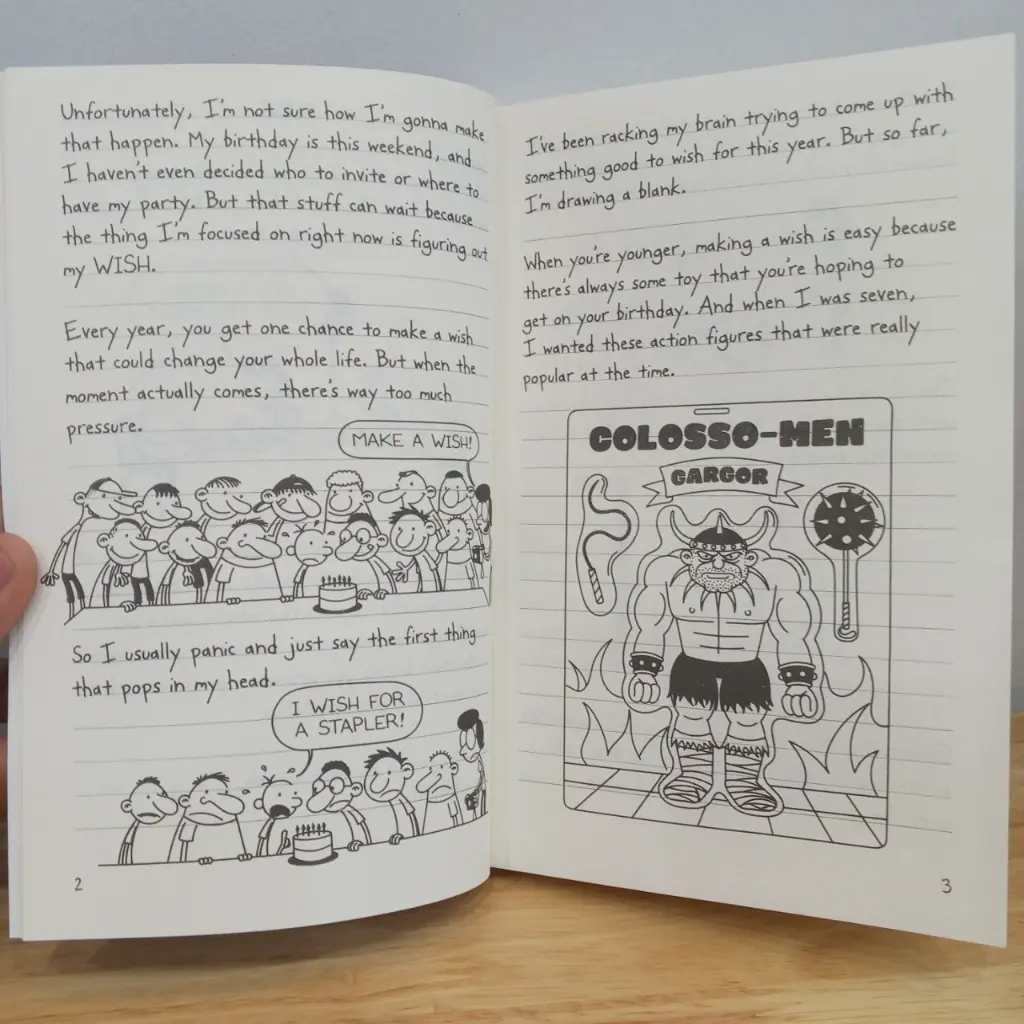 Unfortunately, I'm not sure how I'm gonna make
that happen. My birthday is this weekend, and
I haven't even decided who to invite or where to
have my party. But that stuff can wait because
the thing I'm focused on right now is figuring out
my WISH.
Every year, you get one chance to make a wish
that could change your whole life. But when the
moment actually comes, there's way too much
pressure.
MAKE A WISH!
So I usually panic and just say the first thing
that pops in my head.
I WISH FOR
A STAPLER!
2
I've been racking my brain trying to come up with
something good to wish for this year. But so far,
I'm drawing a blank.
When you're younger, making a wish is easy because
there's always some toy that you're hoping to
get on your birthday. And when I was seven,
I wanted these action figures that were really
popular at the time.
COLOSSO-MEN
GARGOR
3